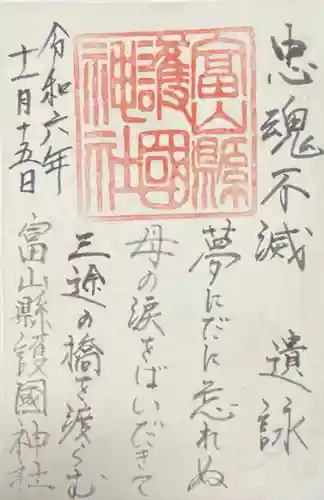 忠魂不滅
遺詠
富山縣
護國
神社
夢にだに忘れぬ
母の涙をばいだきて
三途の橋を渡らむ
富山縣護國神社
令和六年
十一月十五日